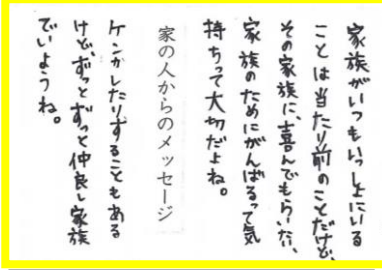 家族がいつもいっしょにいる
ことは当たり前のことだけど、
その家族に、喜んでもらいたい、
家族のためにがんばるって気
持ちって大切だよね。
家の人からのメッセージ
ケンカしたりすることもある
けど、ずっとずっと仲良し家族
でいようね。